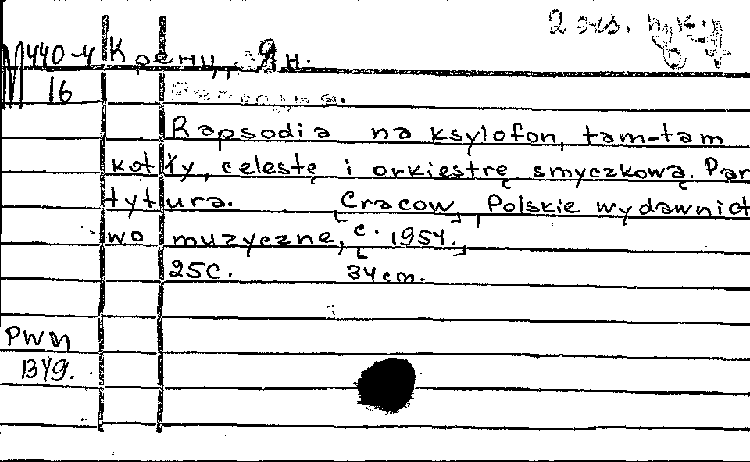 2 экз. н.к.
М440-4 Кренц, Ян.
16
Рапсодия.
Rapsodia na ksylofon, tam-tam
kotły, celestę i orkiestrę smyczkową. Par
tytura. [Cracow], Polskie wydawnict
wo muzyczne, [c. 1954.]
25с. 34cm.
PWM
В49.